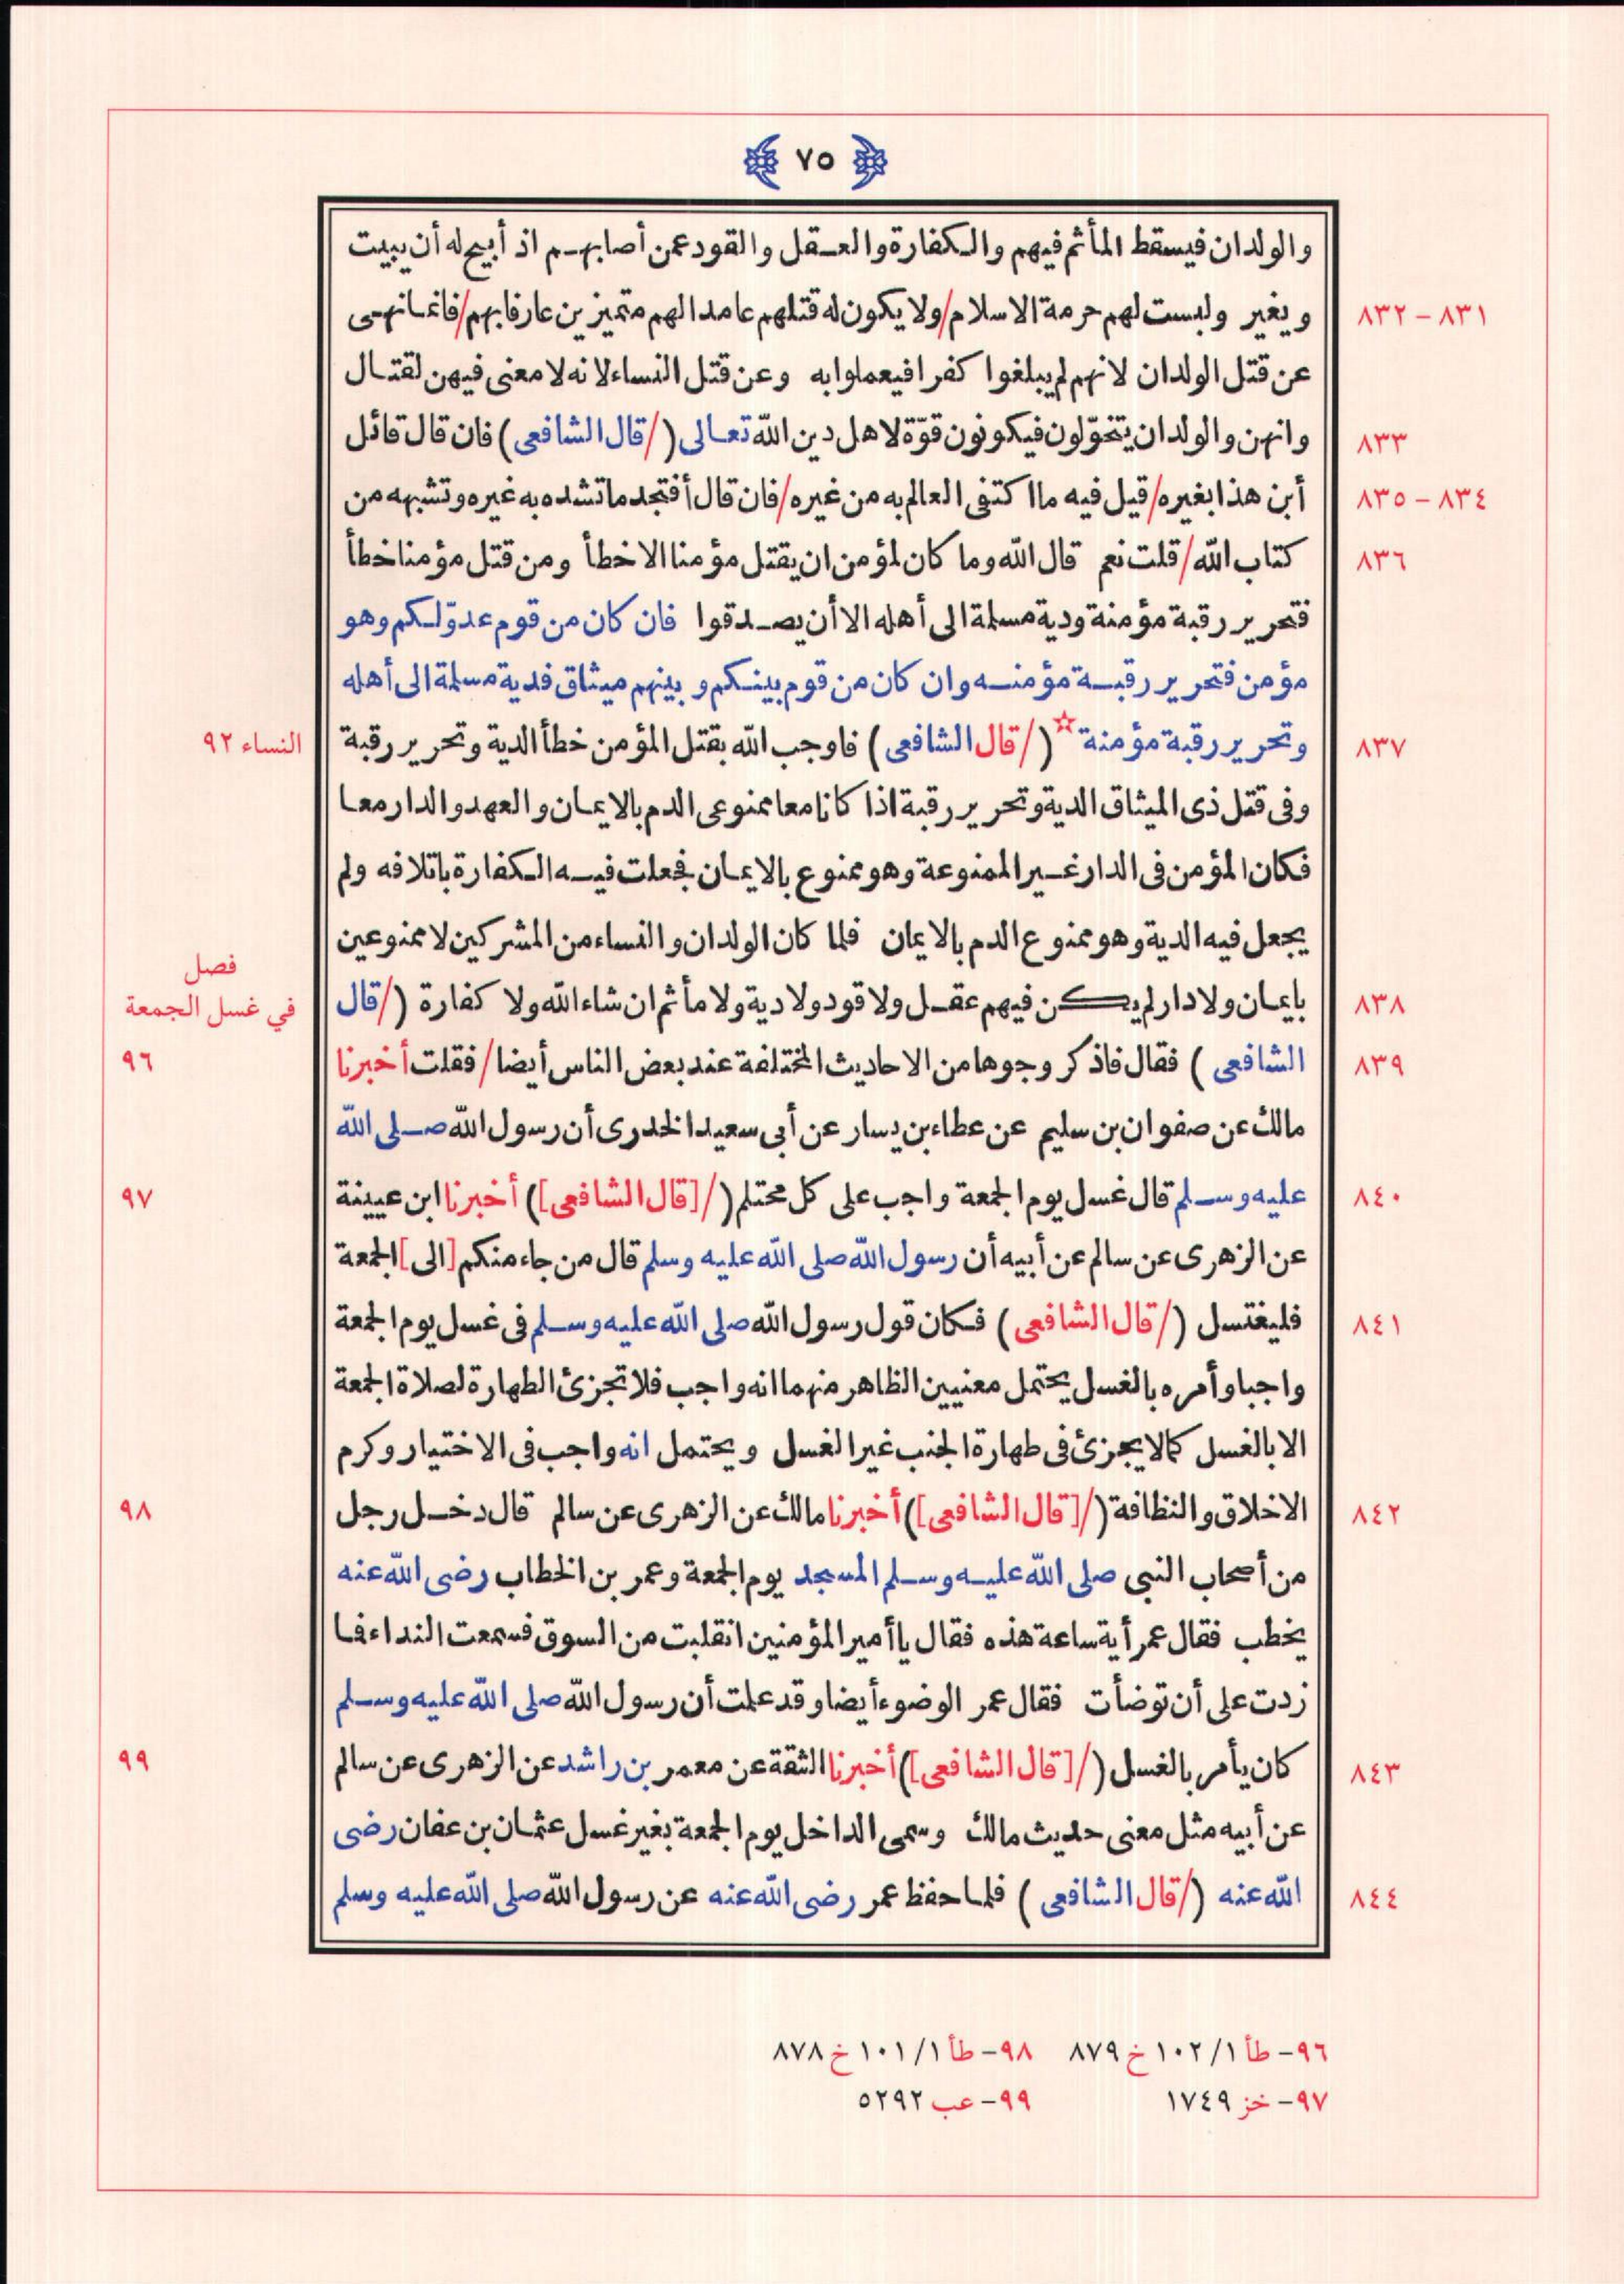 ٧٥
والولدان فيسقط المأثم فيهم والكفارة والعقل والقود عمن أصابهم اذ أبيح له أن يبيت
٨٣١ - ٨٣٢
ويغير وليست لهم حرمة الاسلام/ولا يكون له قتلهم عامدا لهم متميزين عارفا بهم/فانما نهى
عن قتل الولدان لانهم لم يبلغوا كفرا فيعملوا به وعن قتل النساء لانه لا معنى فيهن لقتال
٨٣٣
وانهن والولدان يتخوّلون فيكونون قوّة لاهل دين الله تعالى (/قال الشافعى) فان قال قائل
٨٣٤ - ٨٣٥
أبن هذا بغيره/قيل فيه ما اكتفى العالم به من غيره/فان قال أفتجد ما تشده به غيره وتشبهه من
٨٣٦
كتاب الله/قلت نعم قال الله وما كان لمؤمن ان يقتل مؤمنا الا خطأ ومن قتل مؤمنا خطأ
فتحرير رقبة مؤمنة ودية مسلمة الى أهله الا أن يصدقوا فان كان من قوم عدوّ لكم وهو
مؤمن فتحرير رقبة مؤمنه وان كان من قوم بينكم وبينهم ميثاق فدية مسلمة الى أهله
٨٣٧
وتحرير رقبة مؤمنة☆ (/قال الشافعى) فاوجب الله بقتل المؤمن خطأ الدية وتحرير رقبة
النساء ٩٢
وفى قتل ذى الميثاق الدية وتحرير رقبة اذا كانا معا ممنوعى الدم بالايمان والعهد والدار معا
فكان المؤمن فى الدار غير الممنوعة وهو ممنوع بالايمان فجعلت فيه الكفارة باتلافه ولم
يجعل فيه الدية وهو ممنوع الدم بالايمان فلما كان الولدان والنساء من المشركين لا ممنوعين
فصل
في غسل الجمعة
٨٣٨
بايمان ولا دار لم يكن فيهم عقل ولا قود ولا دية ولا مأثم ان شاء الله ولا كفارة (/قال
٨٣٩
الشافعى) فقال فاذكر وجوها من الاحاديث المختلفة عند بعض الناس أيضا/فقلت أخبرنا
٩٦
مالك عن صفوان بن سليم عن عطاء بن يسار عن أبى سعيد الخدرى أن رسول الله صلى الله
٨٤٠
عليه وسلم قال غسل يوم الجمعة واجب على كل محتلم (/[قال الشافعى]) أخبرنا ابن عيينة
٩٧
عن الزهرى عن سالم عن أبيه أن رسول الله صلى الله عليه وسلم قال من جاء منكم [الى] الجمعة
٨٤١
فليغتسل (/قال الشافعى) فكان قول رسول الله صلى الله عليه وسلم فى غسل يوم الجمعة
واجبا وأمره بالغسل يحتمل معنيين الظاهر منهما انه واجب فلا تجزئ الطهارة لصلاة الجمعة
الا بالغسل كما لا يجزئ فى طهارة الجنب غير الغسل ويحتمل انه واجب فى الاختيار وكرم
٨٤٢
الاخلاق والنظافة (/[قال الشافعى]) أخبرنا مالك عن الزهرى عن سالم قال دخل رجل
٩٨
من أصحاب النبى صلى الله عليه وسلم المسجد يوم الجمعة وعمر بن الخطاب رضى الله عنه
يخطب فقال عمر أية ساعة هذه فقال يا أمير المؤمنين انقلبت من السوق فسمعت النداء فما
زدت على أن توضأت فقال عمر الوضوء أيضا وقد علمت أن رسول الله صلى الله عليه وسلم
٨٤٣
كان يأمر بالغسل (/[قال الشافعى]) أخبرنا الثقة عن معمر بن راشد عن الزهرى عن سالم
٩٩
عن أبيه مثل معنى حديث مالك وسمى الداخل يوم الجمعة بغير غسل عثمان بن عفان رضى
٨٤٤
الله عنه (/قال الشافعى) فلما حفظ عمر رضى الله عنه عن رسول الله صلى الله عليه وسلم
٩٦- طأ ١/ ١٠٢ خ ٨٧٩ ٩٨- طأ ١/ ١٠١ خ ٨٧٨
٩٧- خز ١٧٤٩ ٩٩- عب ٥٢٩٢